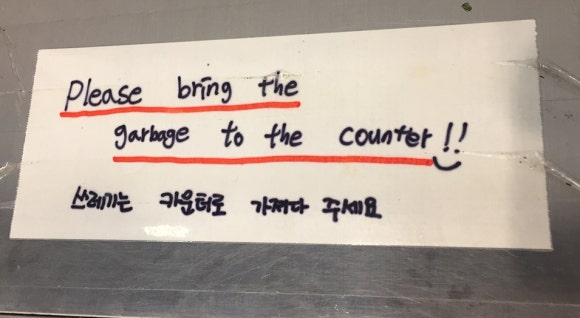 Please bring the
garbage to the counter!!
쓰레기는 카운터로 가져다 주세요